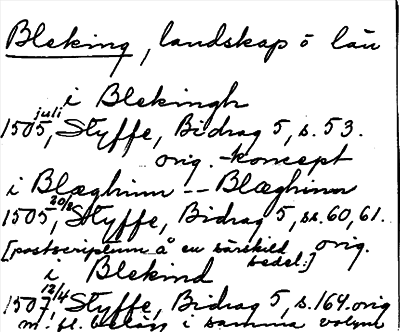 Bleking, landskap o län
i Blekingh
juli
1505, Styffe, Bidrag 5, s. 53.
orig. -koncept
i Blæghinn -- Blæghinn
20/8
1505, Styffe, Bidrag 5, ss. 60, 61.
[postscriptum å en särskild sedel:] orig.
i Blekind
12/4
1507, Styffe, Bidrag 5, s. 164. orig
m. fl. belägg i samma volym